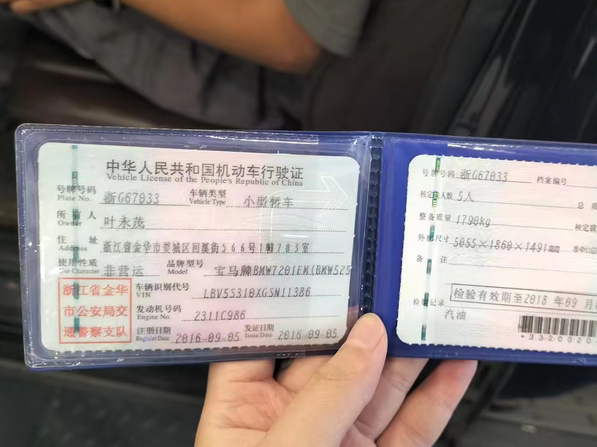 中华人民共和国机动车行驶证
Vehicle License of the People's Republic of China
号牌号码 浙G67033 车辆类型 小型轿车
Plate No. Vehicle Type
所有人 叶永茂
Owner
住址 浙江省金华市婺城区回溪街566号1幢703室
Address
使用性质 非营运 品牌型号 宝马牌BMW7201FM(BMW525
Use Character Model
浙江省金华
市公安局交
通警察支队
车辆识别代号 LBV5S310XGSN11386
VIN
发动机号码 2311C986
Engine No.
注册日期 2016-09-05 发证日期 2016-09-05
Register Date Issue Date
号牌号码 浙G67033 档案编号
核定载人数 5人 总质
整备质量 1790kg 核定载
外廓尺寸 5055×1868×1491mm
备注
检验有效期至2018年09月
检验记录
汽油
*3320020